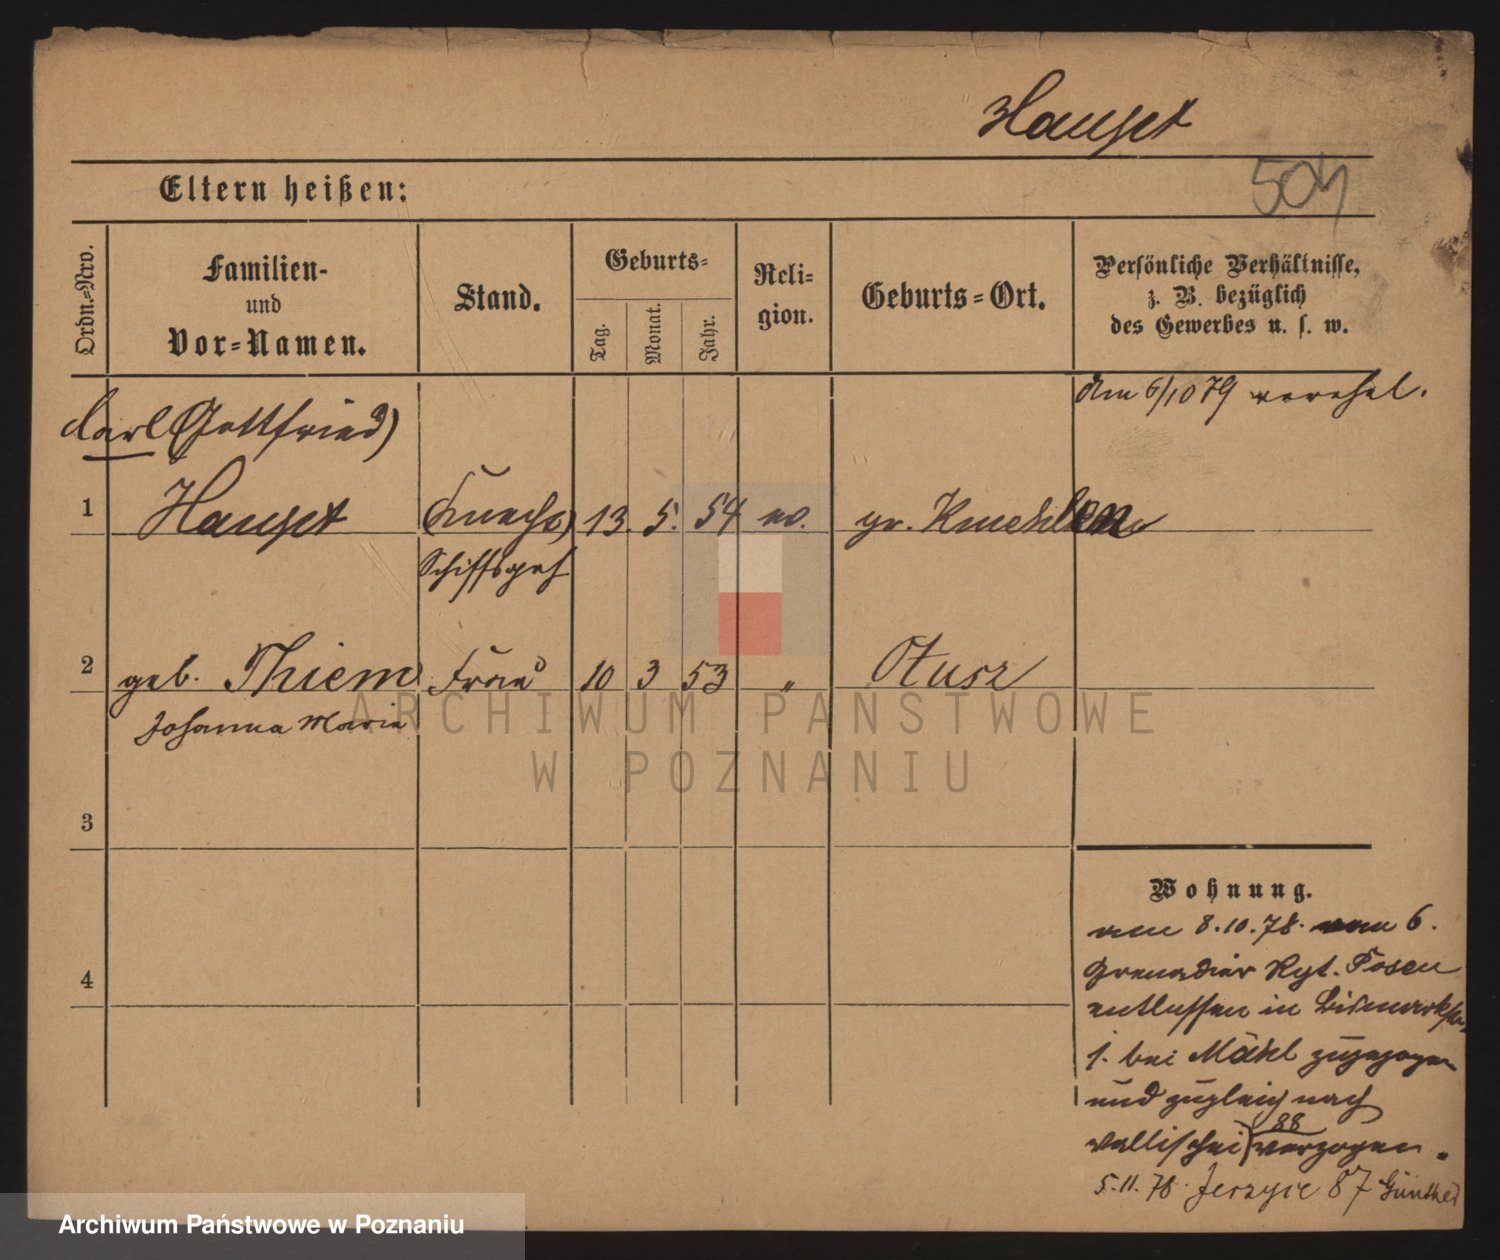 Hauset
504
Eltern heißen:
Ordn.=Nro.
Familien-
und
Vor=Namen.
Stand.
Geburts=
Tag.
Monat.
Jahr.
Reli=
gion.
Geburts=Ort.
Persönliche Verhältnisse,
z. B. bezüglich
des Gewerbes u. s. w.
Am 6/10 79 verehel.
Carl Gottfried)
1 Hauset (Knecht) 13. 5. 54 ev. gr. Kmehlen
Schiffsgeh
2 geb. Thiem Frau 10 3 53 " Otusz
Johanna Marie
3
4
Wohnung.
am 8.10.78. vom 6.
Grenadier Rgt. Posen
entlassen in Bismarkstr
1. bei Mähl zugezogen
und zugleich nach
Wallischei 88 verzogen.
5.11.78. Jerzyce 87 Günther
ARCHIWUM PAŃSTWOWE
W POZNANIU
Archiwum Państwowe w Poznaniu